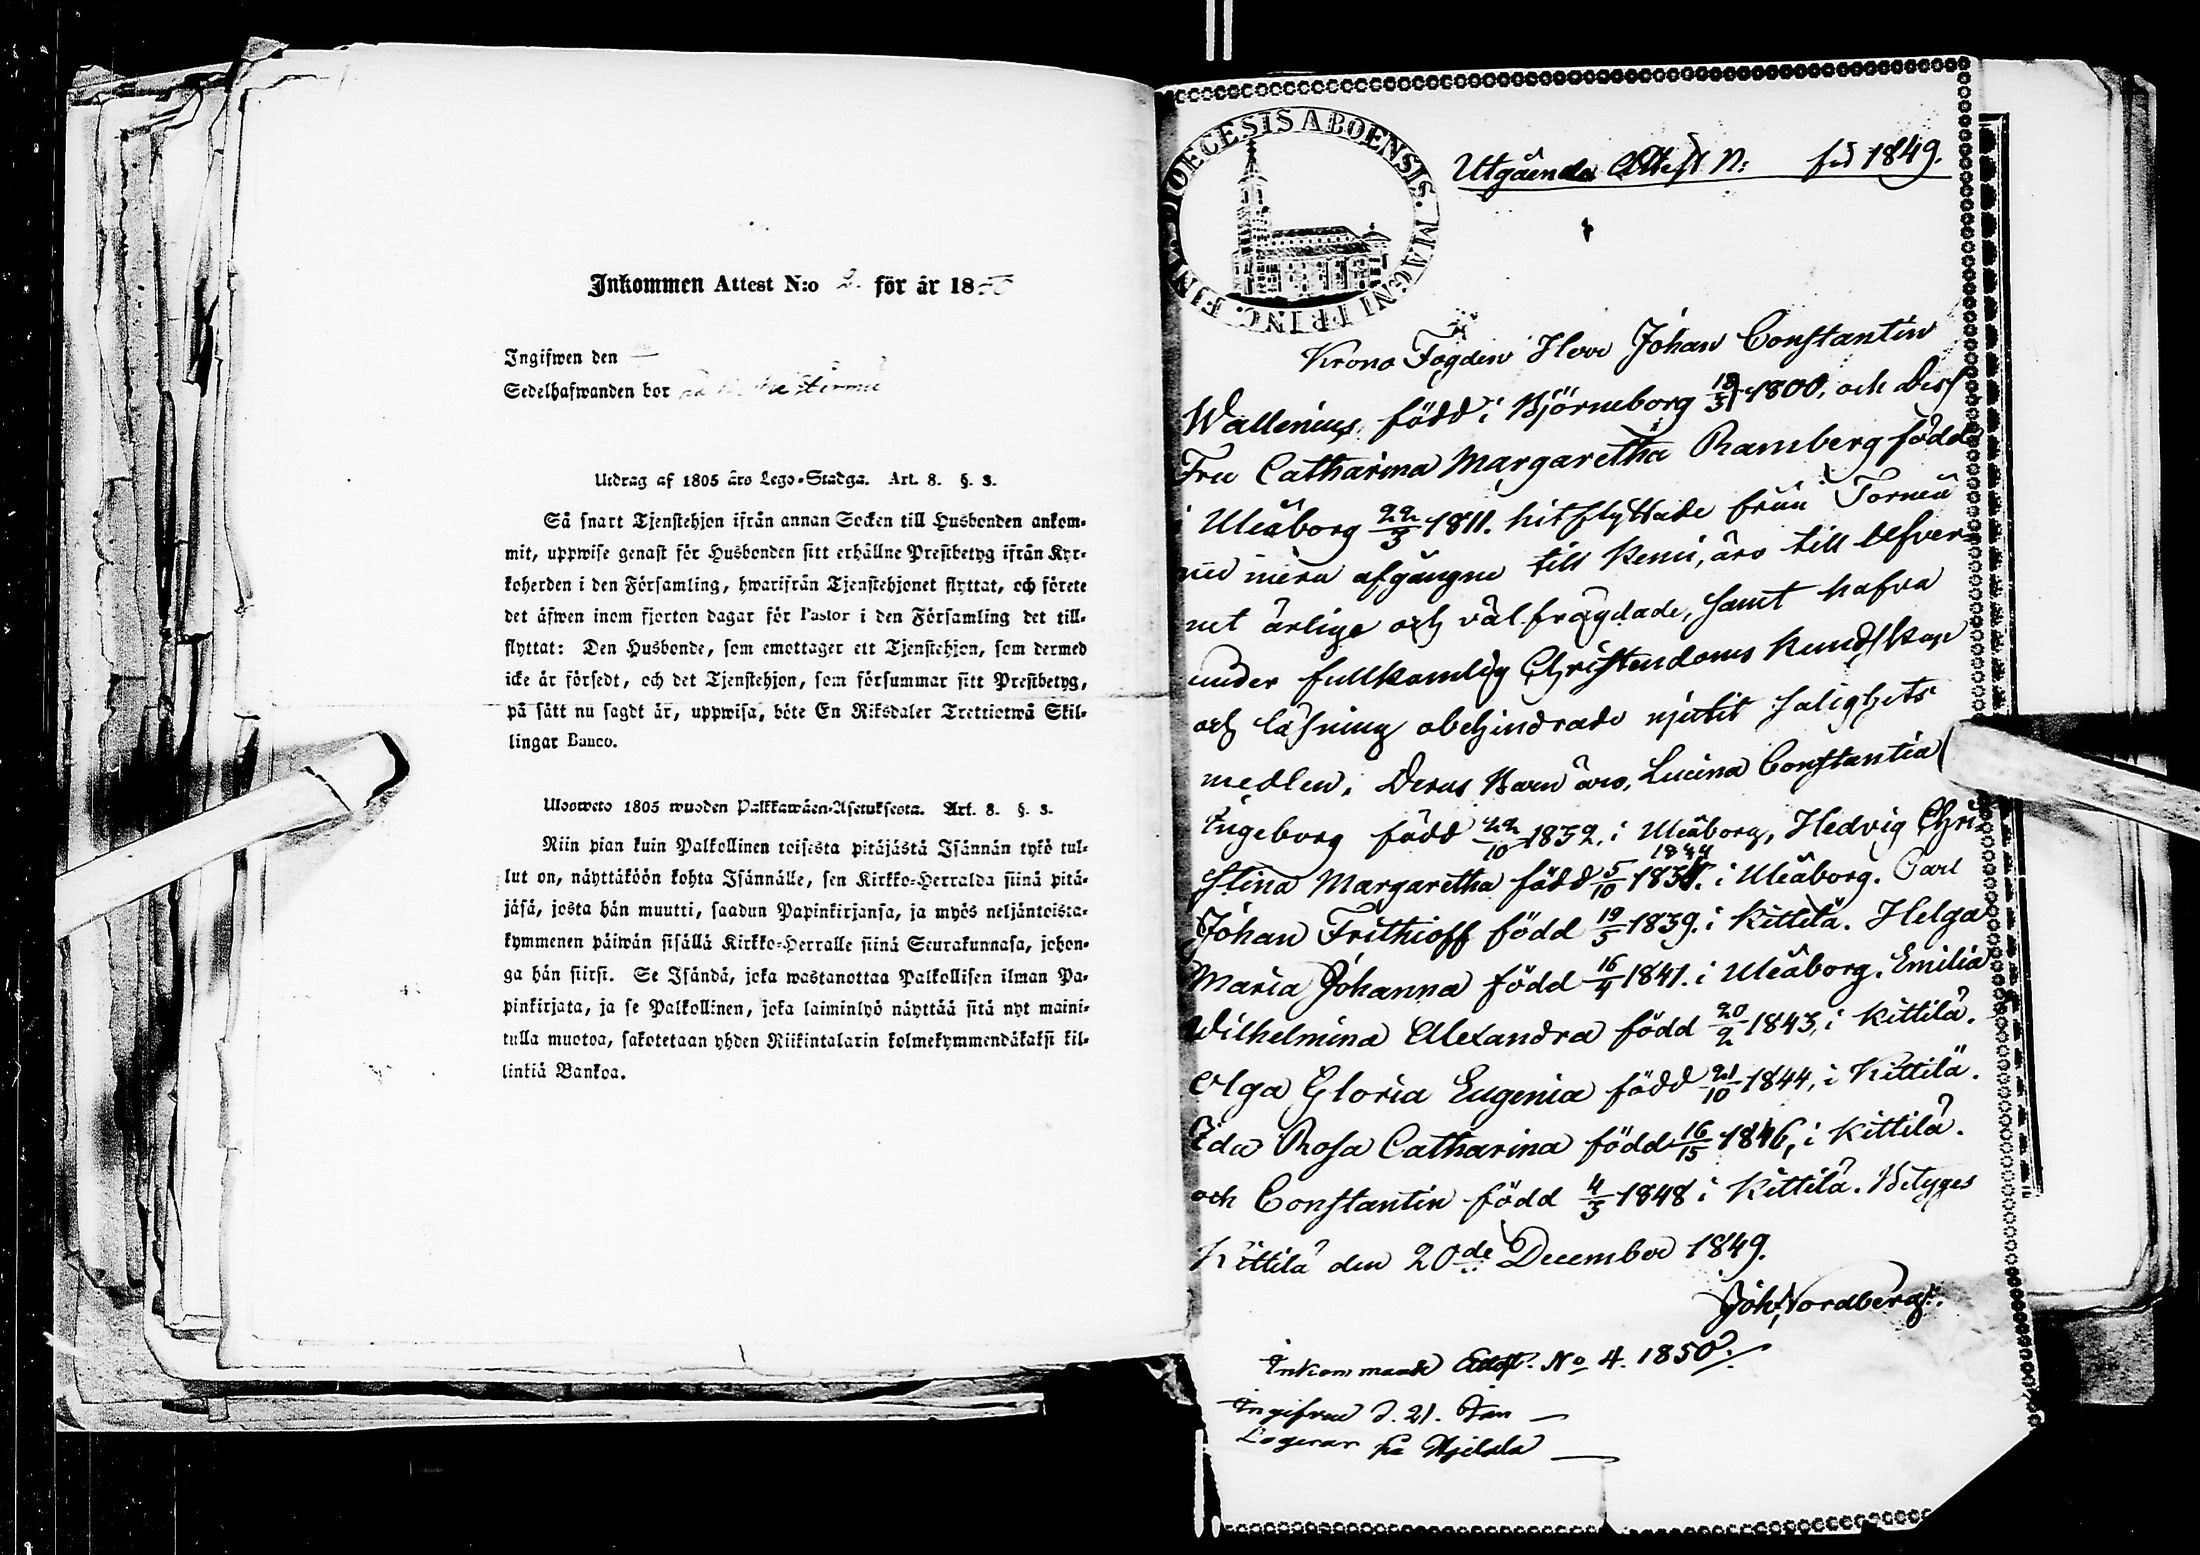 Inkommen Attest N:o 2. för år 18
Ingifwen den
Sedelhafwanden bor
Utdrag af 1805 års Lego-Stadga. Art. 8. §. 3.
Så snart Tjenstehjon ifrån annan Socken till Husbonden ankom-
mit, uppwise genast för Husbonden sitt erhållne Prestbetyg ifrån Kyr-
koherden i den Församling, hwarifrån Tjenstehjonet flyttat, och förete
det äfwen inom fjorton dagar för Pastor i den Församling det till-
flyttat: Den Husbonde, som emottager ett Tjenstehjon, som dermed
icke är försedt, och det Tjenstehjon, som försummar sitt Prestbetyg,
på sätt nu sagdt är, uppwisa, böte En Riksdaler Trettiotwå Skil-
lingar Banco.
Ulosweto 1805 wuoden Palkkawäen-Asetuksesta. Art. 8. §. 3.
Niin pian kuin Palkollinen toisesta pitäjästä Isännän tykö tul-
lut on, näyttäköön kohta Isännälle, sen Kirkko-Herralda siinä pitä-
jäsä, josta hän muutti, saadun Papinkirjansa, ja myös neljäntoista-
kymmenen päiwän sisällä Kirkko-Herralle siinä Seurakunnasa, johon-
ga hän siirsi. Se Isändä, joka wastanottaa Palkollisen ilman Pa-
pinkirjata, ja se Palkollinen, joka laiminlyö näyttää sitä nyt maini-
tulla muotoa, sakotetaan yhden Riikintalarin kolmekymmendäkaksi kil-
linkiä Bankoa.
DIOECESIS ABOENSIS. MAGNI PRINC. FINL.
Utgående Attest N: för 1849.
Krono Fogden Herr Johan Constantin
Wallenius, född i Björneborg 18/3 1800, och dess
Fru Catharina Margaretha Ramberg född
i Uleåborg 22/3 1811. hitflyttade från Torneå
nu mera afgångne till Kemi, äro till lefver-
net ärlige och välfrägdade, samt hafva
under fullkomlig Christendoms kundskap
och läsning obehindrade njutit salighets
medlen. Deras Barn äro, Lucina Constantia
Ingeborg född 22/10 1832, i Uleåborg, Hedvig Chri-
1834
stina Margaretha född 5/10 183. i Uleåborg. Carl
Johan Frithioff född 19/5 1839. i Kittilä. Helga
Maria Johanna född 16/4 1841. i Uleåborg. Emilia
Wilhelmina Alexandra född 20/2 1843, i Kittilä.
Olga Gloria Eugenia född 21/10 1844, i Kittilä.
Ida Rosa Catharina född 16/15 1846, i Kittilä.
och Constantin född 4/3 1848 i Kittilä. Betyges
Kittilä den 20de December 1849.
Joh. Nordberg.
Inkommande Attest. No 4. 1850.
Ingifven d. 21. Jan
Logerar på